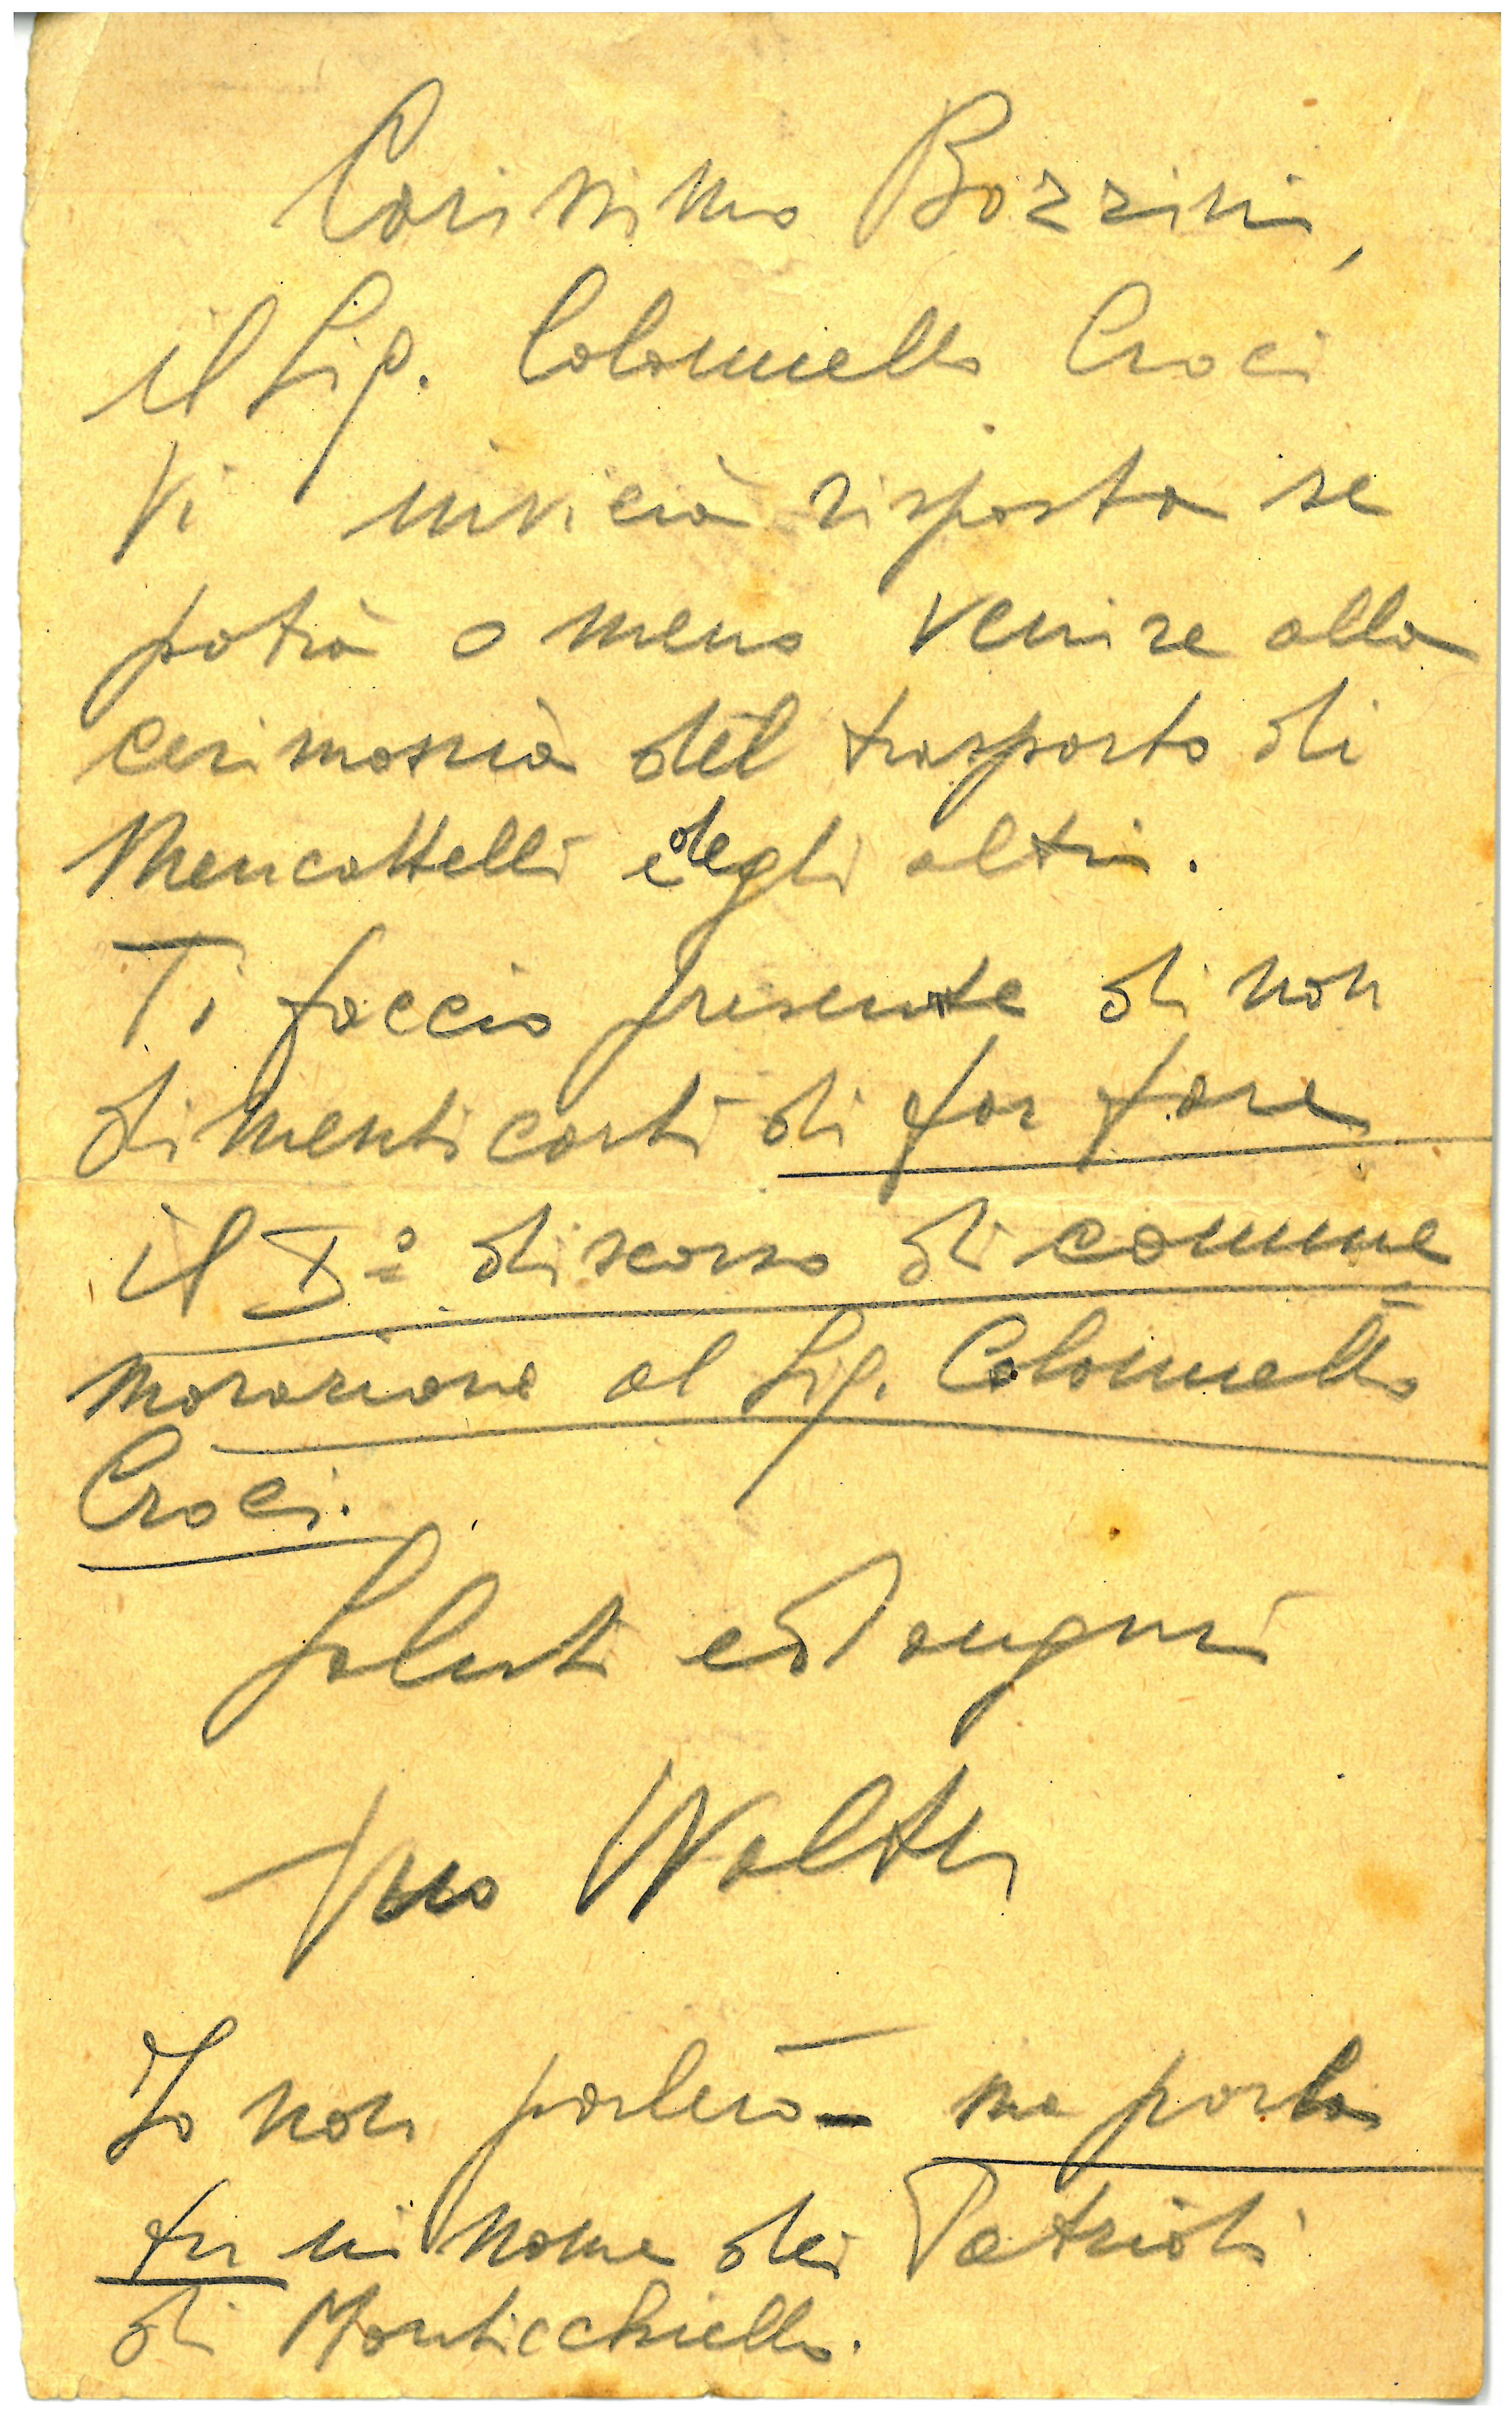 Carissimo Bozzini,
il Sig. Colonnello Croci
Vi invierà risposta se
potrà o meno venire alla
cerimonia del trasporto di
Mencattelli e degli altri.
Ti faccio presente di non
dimenticarti di far fare
il I° discorso di comme
morazione al Sig. Colonnello
Croci.
Saluti ed auguri
tuo Walter
Io non parlerò - ma parla
tu in nome dei Patrioti
di Monticchiello.